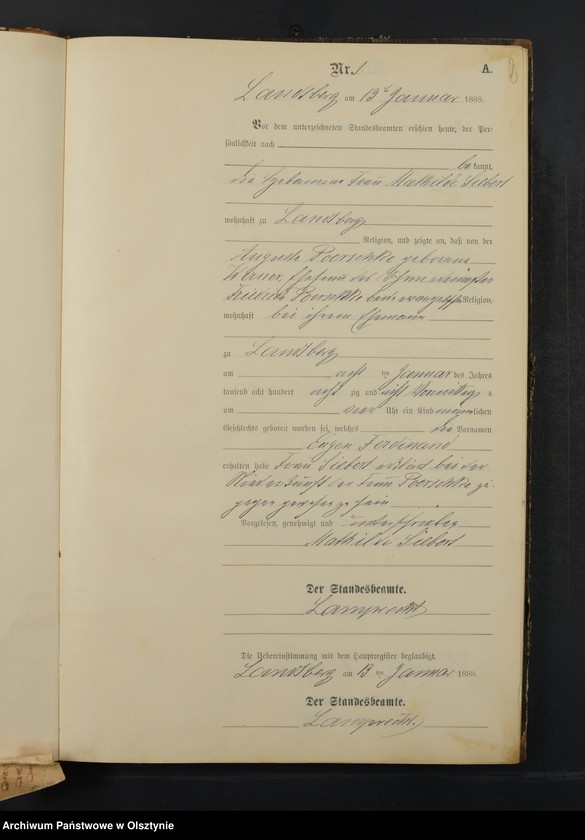 2
Nr. 1 A.
Landsberg am 13ten Januar 1888.
Vor dem unterzeichneten Standesbeamten erschien heute, der Per-
sönlichkeit nach
be kannt,
die Hebamme Frau Mathilde Siebert
wohnhaft zu Landsberg
Religion, und zeigte an, daß von der
Auguste Poerschke geborene
Werner, Ehefrau des
Friedrich Poerschke beide evangelisch Religion,
wohnhaft bei ihrem Ehemann
zu Landsberg
am acht ten Januar des Jahres
tausend acht hundert acht zig und acht Vormittags
um vier Uhr ein Kind männlichen
Geschlechts geboren worden sei, welches die Vornamen
Eugen Ferdinand
erhalten habe Frau Siebert erklärt bei der
Niederkunft der Frau Poerschke zu-
gegen gewesen zu sein
Vorgelesen, genehmigt und unterschrieben
Mathilde Siebert
Der Standesbeamte.
Lamprecht
Die Uebereinstimmung mit dem Hauptregister beglaubigt.
Landsberg am 13 ten Januar 1888.
Der Standesbeamte.
Lamprecht.
Archiwum Państwowe w Olsztynie